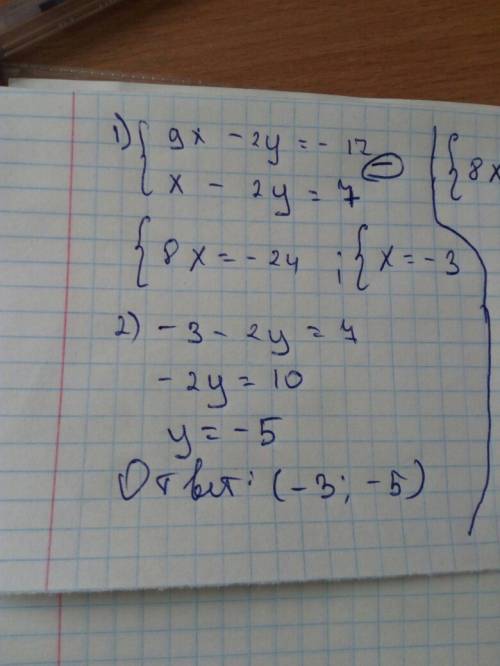 1) { 9x - 2y = - 17
x - 2y = 7 (-)
{ 8x
{ 8x = - 24 ; { x = - 3
2) - 3 - 2y = 7
- 2y = 10
y = - 5
Ответ: (- 3; - 5)